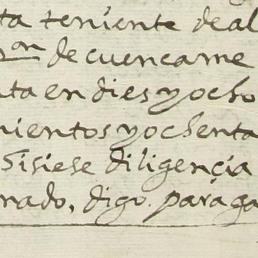 ta teniente de al
on de cuencame
ta en dies y ocho
nientos y ochenta
Sisiese diligençia
rado, digo. para ga